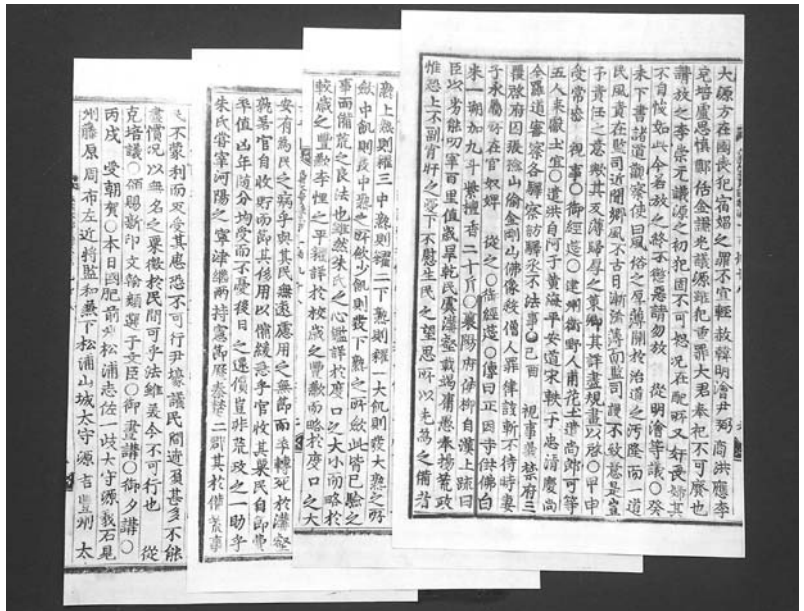 大源方在國喪犯宿娼之罪不宜輕赦韓明澮尹弼商洪應李
克培盧思愼鄭佸金謙光議源雖犯重罪大君奉祀不可廢也
請放之李崇元議源之初犯固不可恕况在配所又奸良婦其
不自悛如此今若放之終不懲惡請勿放 從明澮等議○癸
未下書諸道觀察使曰風俗之厚薄關於治道之汚隆而一道
民風責在監司近聞鄕風不古日漸澆薄而監司謾不致意是豈
予責任之意歟其反薄歸厚之策卿其詳盡規畫以啓○甲申
受常參 視事○御經筵○建州衛野人甫花土遣尙郞可等
五人來獻土宜○遣洪自阿于黃海平安道宋軼于忠淸慶尙
全羅道審察各驛察訪驛丞不法事○己酉 視事義禁府三
覆啓府囚張陰山偷金剛山佛像殺僧人罪律該斬不待時妻
子永屬所在官奴婢 從之○御經筵○傳曰正因寺供佛白
米一朔加九斗紫檀香二十斤○襄陽府使柳自漢上疏曰
臣以劣能叨宰百里値歲旱乾民屢溝壑載竭庸愚奉揚荒政
惟恐上不副宵旰之憂下不慰生民之望思所以先爲之備者
熟上熟則糴三中熟則糴二下熟則糴一大飢則發大熟之所
斂中飢則發中熟之所斂少飢則發下熟之所斂此皆已驗之
事而備荒之良法也雖然朱氏之心鑑詳於度口之大小而略於
較歲之豐歉李悝之平糴詳於校歲之豐歉而略於度口之大
安有爲民之弱乎與其民無遠慮用之無節而卒轉死於溝壑
孰若官自收貯而節其移用以備緩急乎官收其粟民自卽費
卒値凶年隨分均受而不憂後日之還償豈非荒政之一助乎
朱氏嘗宰河陽之寧津繼兩持憲節歷秦楚二郡其於備荒事
不蒙利而反受其患恐不可行尹壕議民間逋負甚多不能
盡償况以無名之粟徵於民間可乎法雖美今不可行也 從
克培議○頒賜新印文翰類選于文臣○御晝講○御夕講○
丙戌 受朝賀○本日國肥前州松浦志佐一歧大守源義石見
州藤原周布左近將監和兼下松浦山城太守源吉豐州太